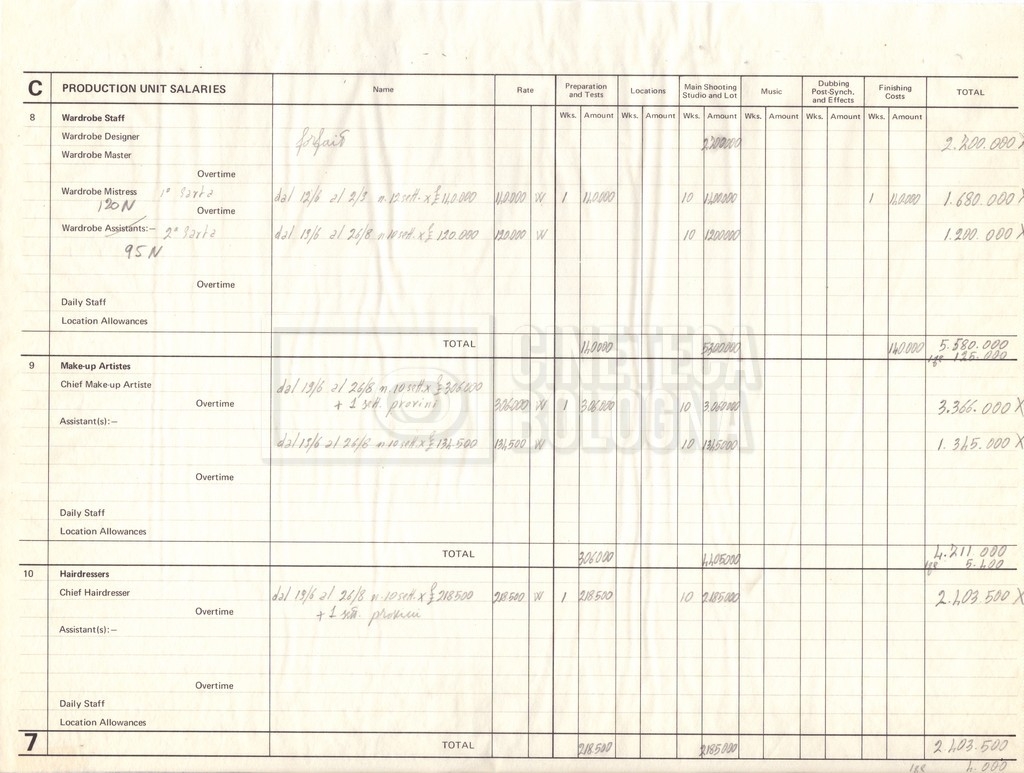 C PRODUCTION UNIT SALARIES Name Rate Preparation and Tests Locations Main Shooting Studio and Lot Music Dubbing Post-Synch. and Effects Finishing Costs TOTAL
8 Wardrobe Staff Wks. Amount Wks. Amount Wks. Amount Wks. Amount Wks. Amount Wks. Amount
Wardrobe Designer forfait 2.400.000 X
Wardrobe Master
Overtime
Wardrobe Mistress 1ª Sarta dal 12/6 al 2/9 n. 12 sett. x £ 140.000 140.000 W 1 140.000 10 1400000 1 140.000 1.680.000 X
120 N
Overtime
Wardrobe Assistants:— 2ª Sarta dal 19/6 al 26/8 n 10 sett. x £ 120.000 120.000 W 10 1200000 1.200.000 X
95 N
Overtime
Daily Staff
Location Allowances
TOTAL 140000 140.000 5.580.000
125.000
9 Make-up Artistes
Chief Make-up Artiste dal 19/6 al 26/8 n. 10 sett. x £ 306000
Overtime + 1 sett. provini 306000 W 1 306000 10 3.060000 3.366.000 X
Assistant(s):—
dal 19/6 al 26/8 n 10 sett. x £ 134.500 134.500 W 10 1345000 1.345.000 X
Overtime
Daily Staff
Location Allowances
TOTAL 306000 4405000 4.711.000
5.400
10 Hairdressers
Chief Hairdresser dal 19/6 al 26/8 n. 10 sett. x £ 218500 218.500 W 1 218.500 10 2185000 2.403.500 X
Overtime + 1 sett. provini
Assistant(s):—
Overtime
Daily Staff
Location Allowances
7 TOTAL 218.500 2185000 2.403.500
4.000
CINETECA
BOLOGNA